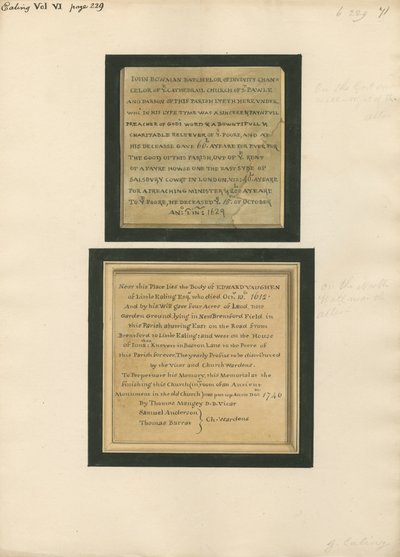 Ealing Vol VI page 229
6 229 71
IOHN BOWMAN BATCHELOR OF DIVINITY CHAN
CELOR OF Yᵉ CATHEDRALL CHURCH OF Sᵗ PAWLE
AND PARSON OF THIS PARISH LYETH HERE VNDER,
WHO IN HIS LYFE TYME WAS A SINCERE & PAYNFVLL
PREACHER OF GODS WORD & A BOWNTIFVLL &
CHARITABLE RELIEVER OF Yᵉ POORE, AND AT
HIS DECEASE GAVE AYEARE FOR EVER FOR
THE GOOD OF THIS PARISH, OVT OF Yᵉ RENT
OF A FAYRE HOWSE ONE THE EAST SYDE OF
SALSBURY COWRT IN LONDON, VIZ: AYEARE
FOR A PREACHING MINISTER & AYEARE
TO Yᵉ POORE, HE DECEASED Yᵉ OF OCTOBER
1629
On the East
Near this Place lies the Body of EDWARD VAUGHEN
of Little Ealing Esqʳ. who died Octʳ. 10ᵗʰ. 1612.
And by his Will gave four Acres of Land, now
Garden Ground, lying in New Brentford Field in
this Parish abutting East on the Road from
Brentford to Little Ealing: and West on the House
of John Knevets in Boston Lane to the Poore of
this Parish forever. The yearly Profits to be distributed
by the Vicar and Church Wardens.
To Perpetuate his Memory, this Memorial at the
finishing this Church (in room of an Ancient
Monument in the old Church) was put up Anno Dom 1740
By Thomas Mangey D.D. Vicar
Samuel Anderson
Thomas Barrat
Ch. Wardens
On the North
Ealing